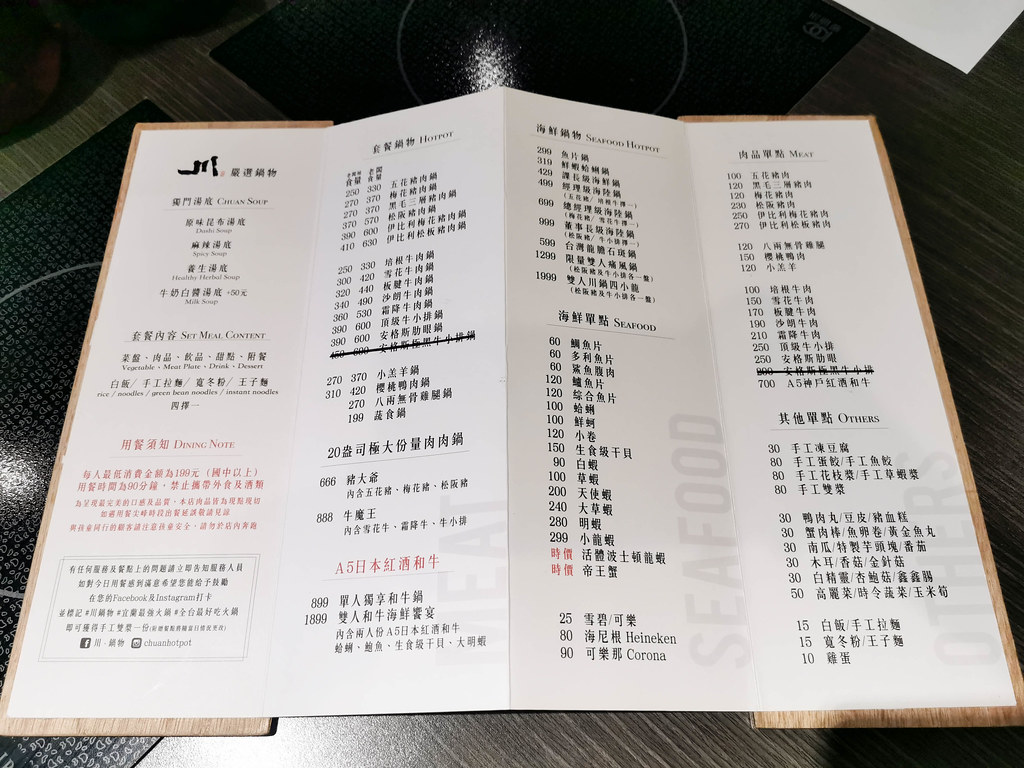 川 嚴選鍋物
獨門湯底 CHUAN SOUP
原味昆布湯底
Dashi Soup
麻辣湯底
Spicy Soup
養生湯底
Healthy Herbal Soup
牛奶白醬湯底 +50元
Milk Soup
套餐內容 SET MEAL CONTENT
菜盤、肉品、飲品、甜點、附餐
Vegetable、Meat Plate、Drink、Dessert
白飯/ 手工拉麵/ 寬冬粉/ 王子麵
rice / noodles / green bean noodles / instant noodles
四擇一
用餐須知 DINING NOTE
每人最低消費金額為199元 (國中以上)
用餐時間為90分鐘，禁止攜帶外食及酒類
為呈現最完美的口感及品質，本店肉品皆為現點現切
如遇用餐尖峰時段出餐延誤敬請見諒
與孩童同行的顧客請注意孩童安全，請勿於店內奔跑
有任何服務及餐點上的問題請立即告知服務人員
如對今日用餐感到滿意希望您能給予鼓勵
在您的Facebook及Instagram打卡
並標記 #川鍋物 #宜蘭最強火鍋 #全台最好吃火鍋
即可獲得手工雙漿一份
川・鍋物 chuanhotpot
套餐鍋物 HOTPOT
食量 食量
250 330 五花豬肉鍋
270 370 梅花豬肉鍋
270 370 黑毛三層豬肉鍋
370 570 松阪豬肉鍋
390 600 伊比利梅花豬肉鍋
410 630 伊比利松板豬肉鍋
250 330 培根牛肉鍋
300 420 雪花牛肉鍋
320 440 板腱牛肉鍋
340 490 沙朗牛肉鍋
360 530 霜降牛肉鍋
390 600 頂級牛小排鍋
390 600 安格斯肋眼鍋
安格斯極黑牛小排鍋
270 370 小羔羊鍋
310 420 櫻桃鴨肉鍋
270 八兩無骨雞腿鍋
199 蔬食鍋
20盎司極大份量肉肉鍋
666 豬大爺
內含五花豬、梅花豬、松阪豬
888 牛魔王
內含雪花牛、霜降牛、牛小排
A5日本紅酒和牛
899 單人獨享和牛鍋
1899 雙人和牛海鮮饗宴
內含兩人份A5日本紅酒和牛
蛤蜊、鮑魚、生食級干貝、大明蝦
MEAT
海鮮鍋物 SEAFOOD HOTPOT
299 魚片鍋
319 鮮蝦蛤蜊鍋
429 課長級海鮮鍋
499 經理級海陸鍋
(五花豬/ 培根牛擇一)
699 總經理級海陸鍋
(梅花豬/ 雪花牛擇一)
999 董事長級海陸鍋
(松阪豬/ 牛小排擇一)
599 台灣龍膽石斑鍋
1299 限量雙人痛風鍋
(松阪豬及牛小排各一盤)
1999 雙人川鍋四小龍
(松阪豬及牛小排各一盤)
海鮮單點 SEAFOOD
60 鯛魚片
60 多利魚片
60 鯊魚腹肉
120 鱸魚片
120 綜合魚片
100 蛤蜊
100 鮮蚵
120 小卷
150 生食級干貝
90 白蝦
100 草蝦
200 天使蝦
240 大草蝦
280 明蝦
299 小龍蝦
時價 活體波士頓龍蝦
時價 帝王蟹
25 雪碧/可樂
80 海尼根 Heineken
90 可樂那 Corona
SEAFOOD
肉品單點 MEAT
100 五花豬肉
120 黑毛三層豬肉
120 梅花豬肉
230 松阪豬肉
250 伊比利梅花豬肉
270 伊比利松板豬肉
120 八兩無骨雞腿
150 櫻桃鴨肉
120 小羔羊
100 培根牛肉
150 雪花牛肉
170 板腱牛肉
190 沙朗牛肉
210 霜降牛肉
250 頂級牛小排
250 安格斯肋眼
安格斯極黑牛小排
700 A5神戶紅酒和牛
其他單點 OTHERS
30 手工凍豆腐
80 手工蛋餃/手工魚餃
80 手工花枝漿/手工草蝦漿
80 手工雙漿
30 鴨肉丸/豆皮/豬血糕
30 蟹肉棒/魚卵卷/黃金魚丸
30 南瓜/特製芋頭塊/番茄
30 木耳/香菇/金針菇
30 白精靈/杏鮑菇/鑫鑫腸
50 高麗菜/時令蔬菜/玉米筍
15 白飯/手工拉麵
15 寬冬粉/王子麵
10 雞蛋
OTHERS